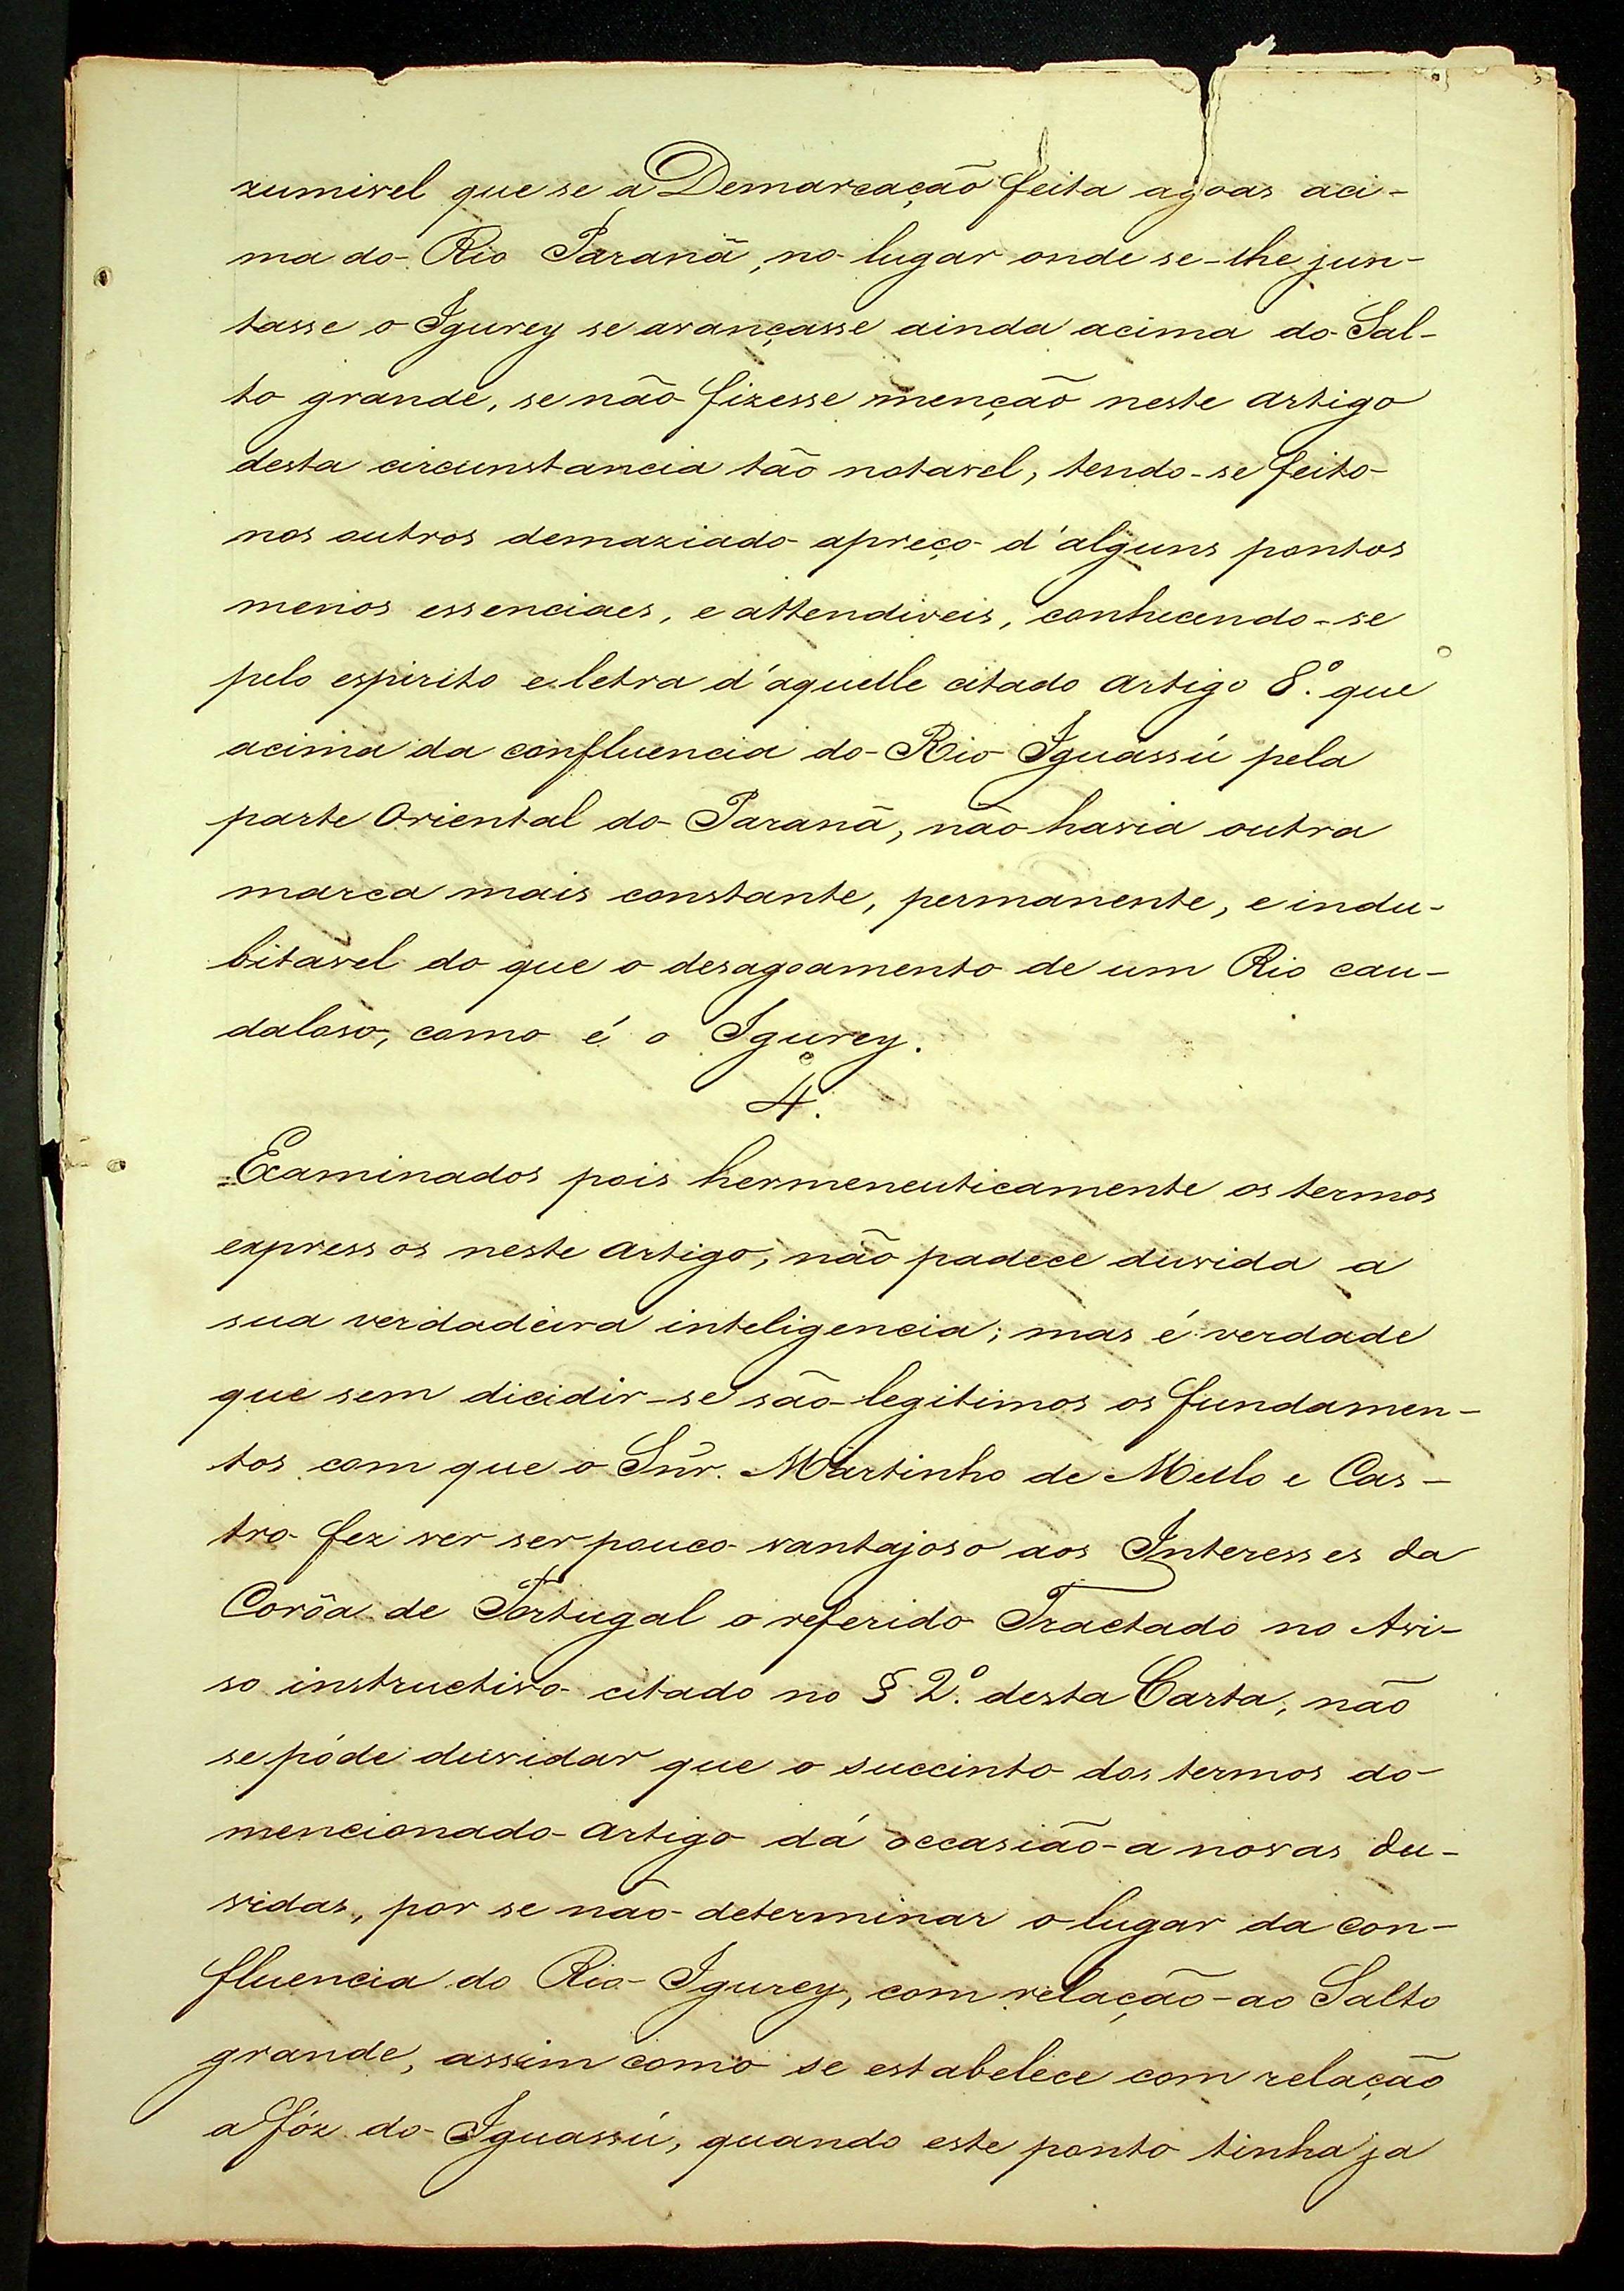 zumivel que se a Demarcação feita agoas aci-
ma do Rio Paranã, no lugar onde se-lhe jun-
tasse o Igurey se avançasse ainda acima do Sal-
to grande, se não fizesse menção neste artigo
desta circunstancia tão notavel, tendo-se feito
nos outros demaziado apreço d'alguns pontos
menos essenciaes, e attendiveis, conhecendo-se
pelo espirito e letra d'aquelle citado artigo 8.º que
acima da confluencia do Rio Iguassú pela
parte Oriental do Paranã, não havia outra
marca mais constante, permanente, e indu-
bitavel do que o desagoamento de um Rio cau-
daloso, como é o Igurey.
4.º
Examinados pois hermeneuticamente os termos
expressos neste artigo, não padece duvida a
sua verdadeira inteligencia; mas é verdade
que sem dicidir-se são legitimos os fundamen-
tos com que o Snr. Martinho de Mello e Cas-
tro fez ver ser pouco vantajoso aos Interesses da
Corôa de Portugal o referido Tractado no Avi-
so instructivo citado no § 2.º desta Carta, não
se póde duvidar que o succinto dos termos do
mencionado artigo dá occasião a novas du-
vidas, por se não determinar o lugar da con-
fluencia do Rio Igurey, com relação ao Salto
grande, assim como se estabelece com relação
a fóz do Iguassú, quando este ponto tinha ja